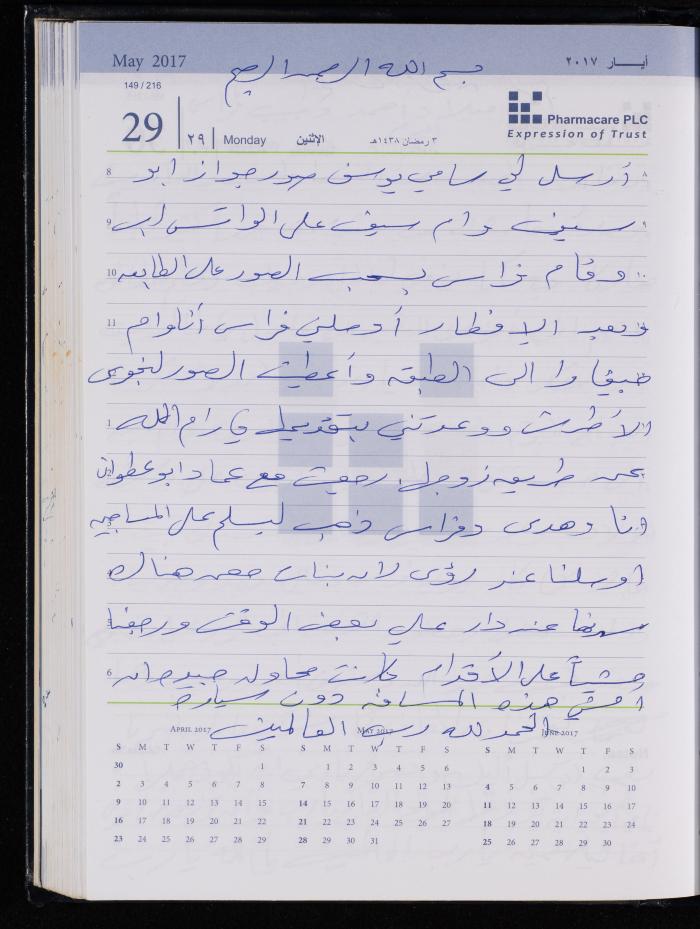 May 2017
أيـــار ٢٠١٧
بسم الله الرحمن الرحيم
149 / 216
29 | ٢٩ | Monday الإثنين ٣ رمضان ١٤٣٨هـ
Pharmacare PLC
Expression of Trust
8 أرسل لي سامي يوسف صور جواز ابو ٨
9 سيف وام سيف على الواتس اب ٩
10 وقام فراس بسحب الصور على الطابعه ١٠
11 وبعد الافطار أوصلني فراس أنا وام
الى الطبقه وأعطيت الصور لنجوى
1 الأطرش ووعدتني بتقديمها في رام الله
عن طريق زوجها. رجعت مع عماد ابو عطوان
انا وهدى وفراس ذهب ليسلم على
اوصلنا عند رؤى لان بنات هناك
سهرنا عند دار علي بعض الوقت ورجعنا
6 مشياً على الأقدام كانت محاوله جيده ان
أمشي هذه المسافه دون سياره
الحمد لله رب العالمين
APRIL 2017 MAY 2017 JUNE 2017
S M T W T F S S M T W T F S S M T W T F S
30 1 1 2 3 4 5 6 1 2 3
2 3 4 5 6 7 8 7 8 9 10 11 12 13 4 5 6 7 8 9 10
9 10 11 12 13 14 15 14 15 16 17 18 19 20 11 12 13 14 15 16 17
16 17 18 19 20 21 22 21 22 23 24 25 26 27 18 19 20 21 22 23 24
23 24 25 26 27 28 29 28 29 30 31 25 26 27 28 29 30